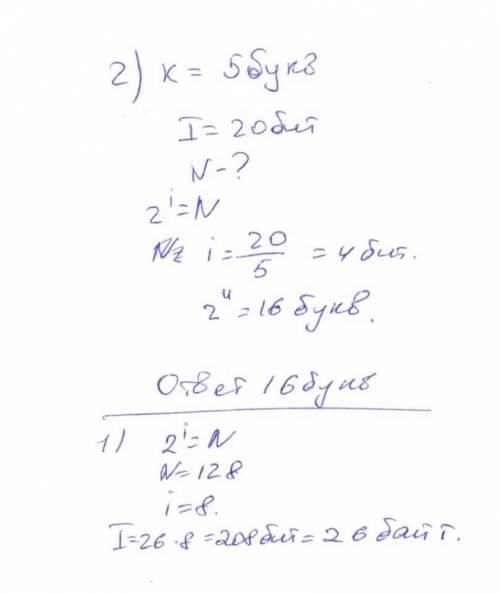 2) к = 5 букв
I = 20 бит
N - ?
2^i = N
i = 20/5 = 4 бит.
2^4 = 16 букв.
Ответ 16 букв
1) 2^i = N
N = 128
i = 8.
I = 26 · 8 = 208 бит = 26 байт.